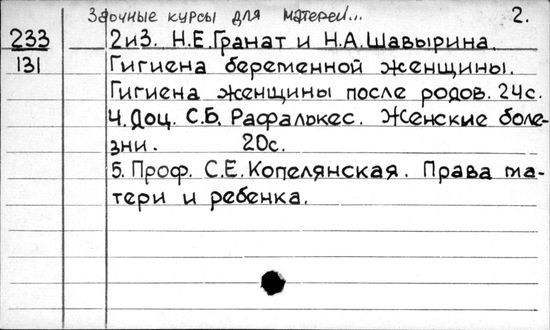 Заочные курсы для матерей... 2.
233 2и3. Н.Е.Гранат и Н.А.Шавырина.
131 Гигиена беременной женщины.
Гигиена женщины после родов. 24с.
4. Доц. С.Б. Рафалькес. Женские боле-
зни. 20с.
5. Проф. С.Е. Копелянская. Права ма-
тери и ребенка.